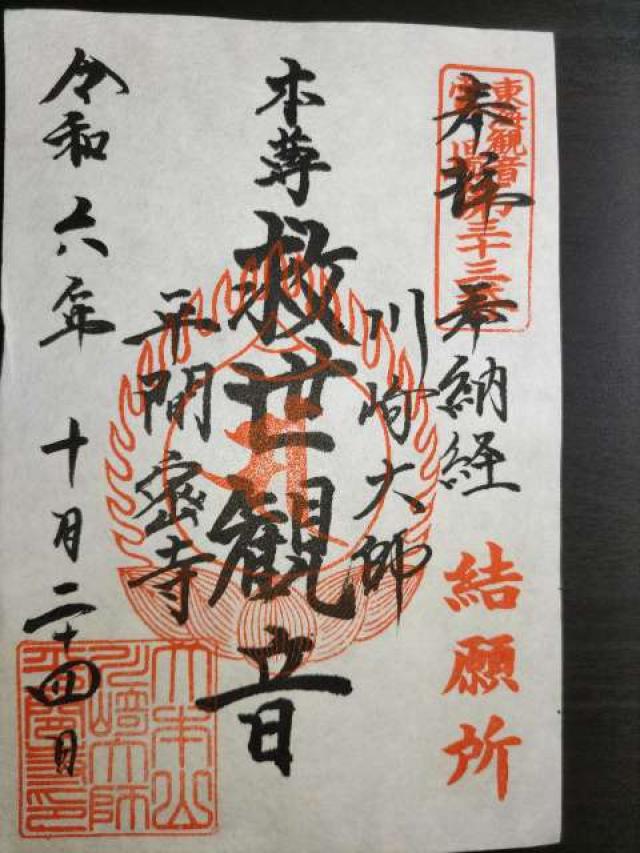 奉拝 奉納経
東海観音
第三十三
結願所
川崎大師
本尊 救世観音
平間密寺
令和六年 十月二十四日
大本山
川﨑大師